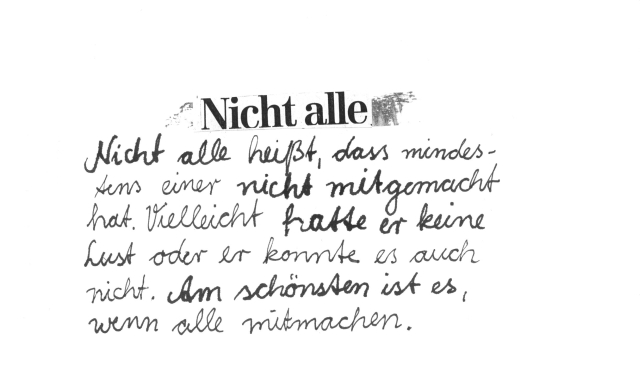 Nicht alle
Nicht alle heißt, dass mindes-
tens einer nicht mitgemacht
hat. Vielleicht hatte er keine
Lust oder er konnte es auch
nicht. Am schönsten ist es,
wenn alle mitmachen.